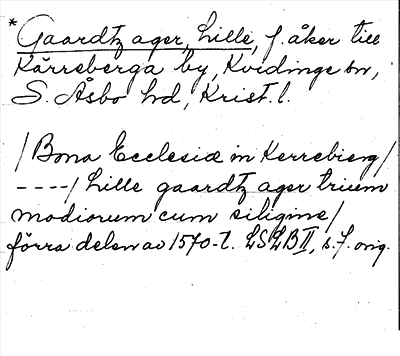 *Gaardtz ager, Lille, f. åker till
Kärreberga by, Kvidinge sn,
S. Åsbo hd, Krist. l.
/Bona Ecclesiæ in Kerrebierg/
----/ Lille gaardtz ager trium
modiorum cum siligine/
förra delen av 1570-t. LSLB II, s. f. orig.